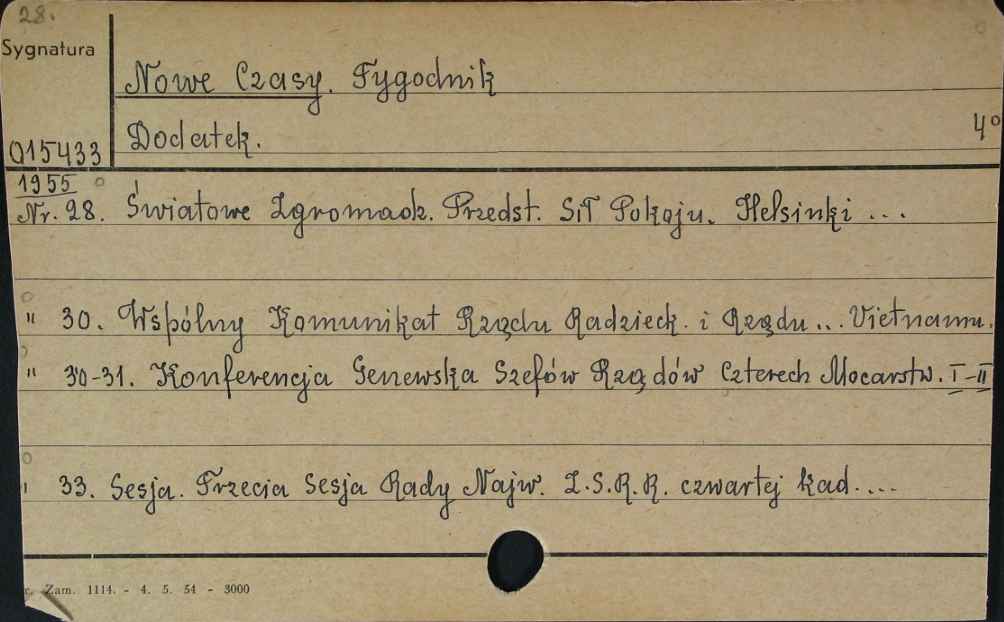 28.
Sygnatura
Nowe Czasy. Tygodnik
Dodatek. 4º
015433
1955
Nr. 28. Światowe Zgromadz. Przedst. Sił Pokoju. Helsinki ...
" 30. Wspólny Komunikat Rządu Radzieck. i Rządu ... Vietnamu.
" 30-31. Konferencja Genewska Szefów Rządów Czterech Mocarstw. I-II
" 33. Sesja. Trzecia Sesja Rady Najw. Z.S.R.R. czwartej kad....
Zam. 1114. - 4. 5. 54 - 3000